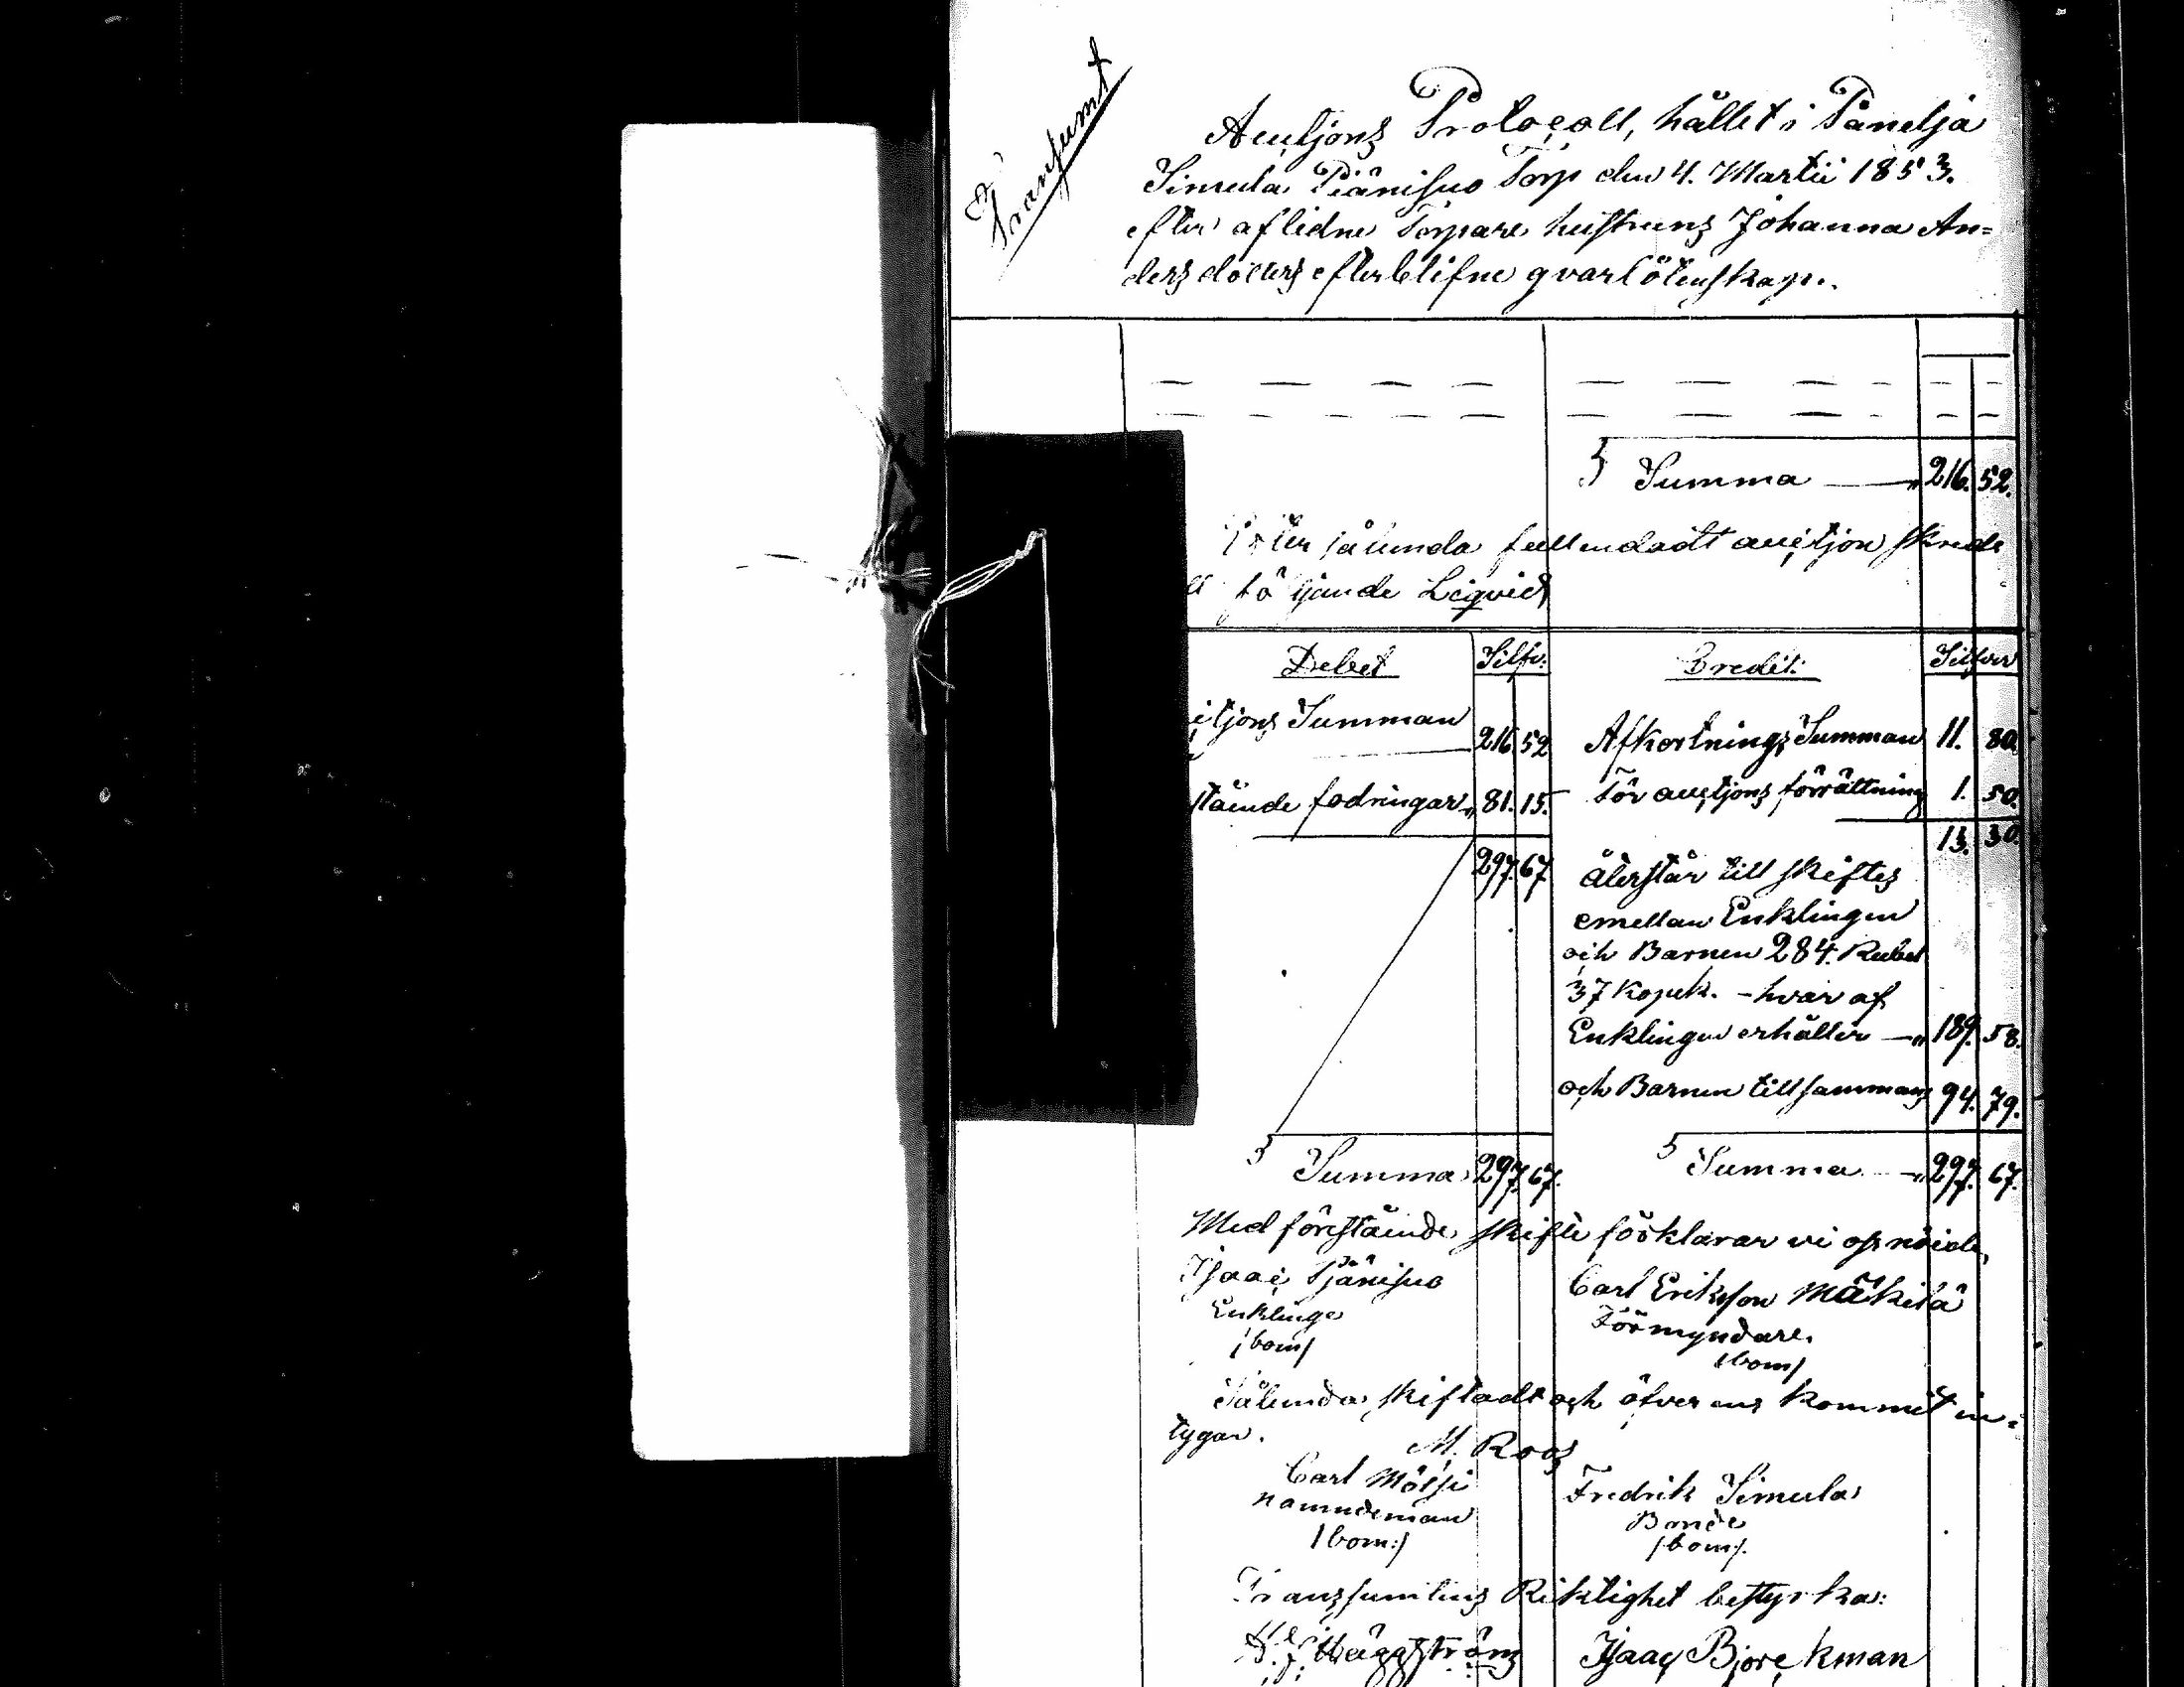 Transumt
Auctjons Protocoll, hållet i Päneljä
Simula Piänisuo Torp den 4. Martii 1853.
efter aflidne Torpare hustruns Johanna An=
ders dotters efterblifne qvarlåtenskap.
Summa — " 216. 52.
Efter sålunda fullendadt auctjon skred
följande Liqvid
Debet Silfv: Credit: Silfver
ctjons Summan 216 52 Afkortnings Summan 11. 80.
stående fodringar " 81. 15. För auctjons förrättning 1. 50.
13. 30.
297. 67 återstår till skiftes
emellan Enklingen
och Barnen 284. Rubel
37 Kopek. - hvar af
Enklingen erhåller — " 189. 58.
och Barnen tillsammans 94. 79.
Summa 297. 67. Summa — " 297. 67.
Med förestående skifte förklarar vi oss nöjde,
Isaac Piänisuo Carl Eriksson Mäkilä
Enklinge Förmyndare.
/bom/ /bom/
Sålunda skiftadt och öfverens kommit in=
tygar.
M. Roos
Carl Mötsi Fredrik Simula
nämndeman Bonde
/bom:/ /bom/.
Transsumtens Riktighet bestyrka:
Häggström Isaac Björckman